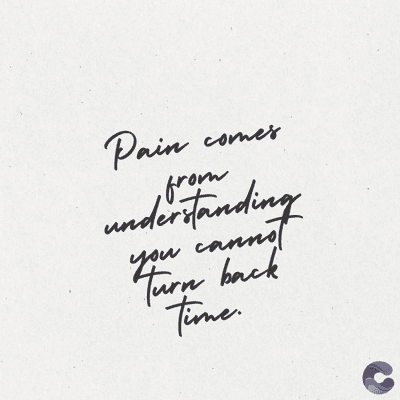 Pain comes
from
understanding
you cannot
turn back
time.